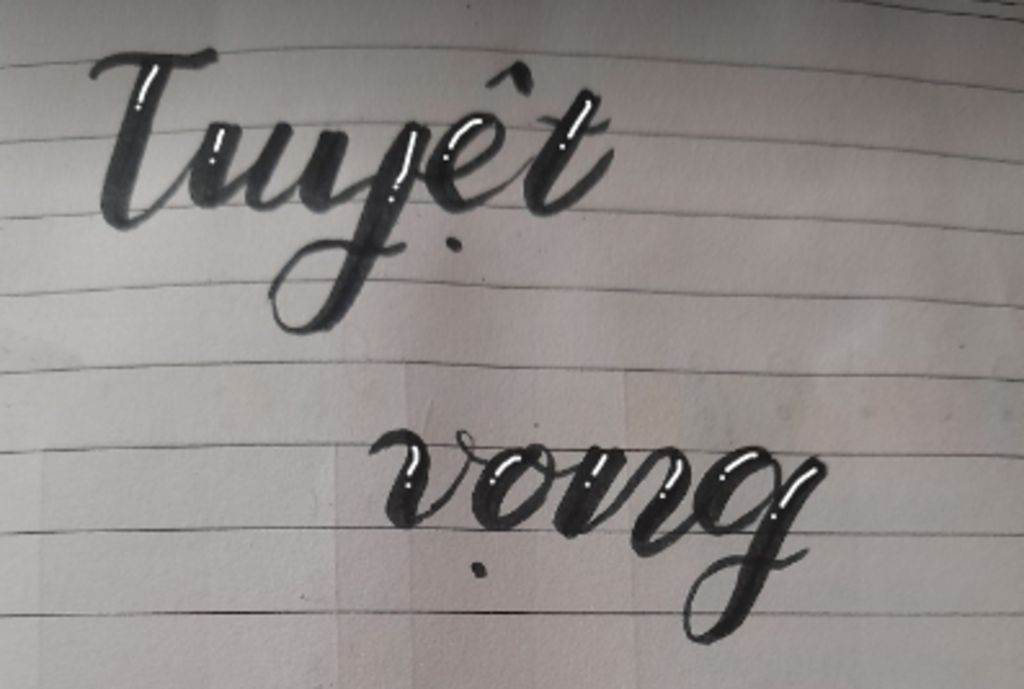 Tuyệt
vọng